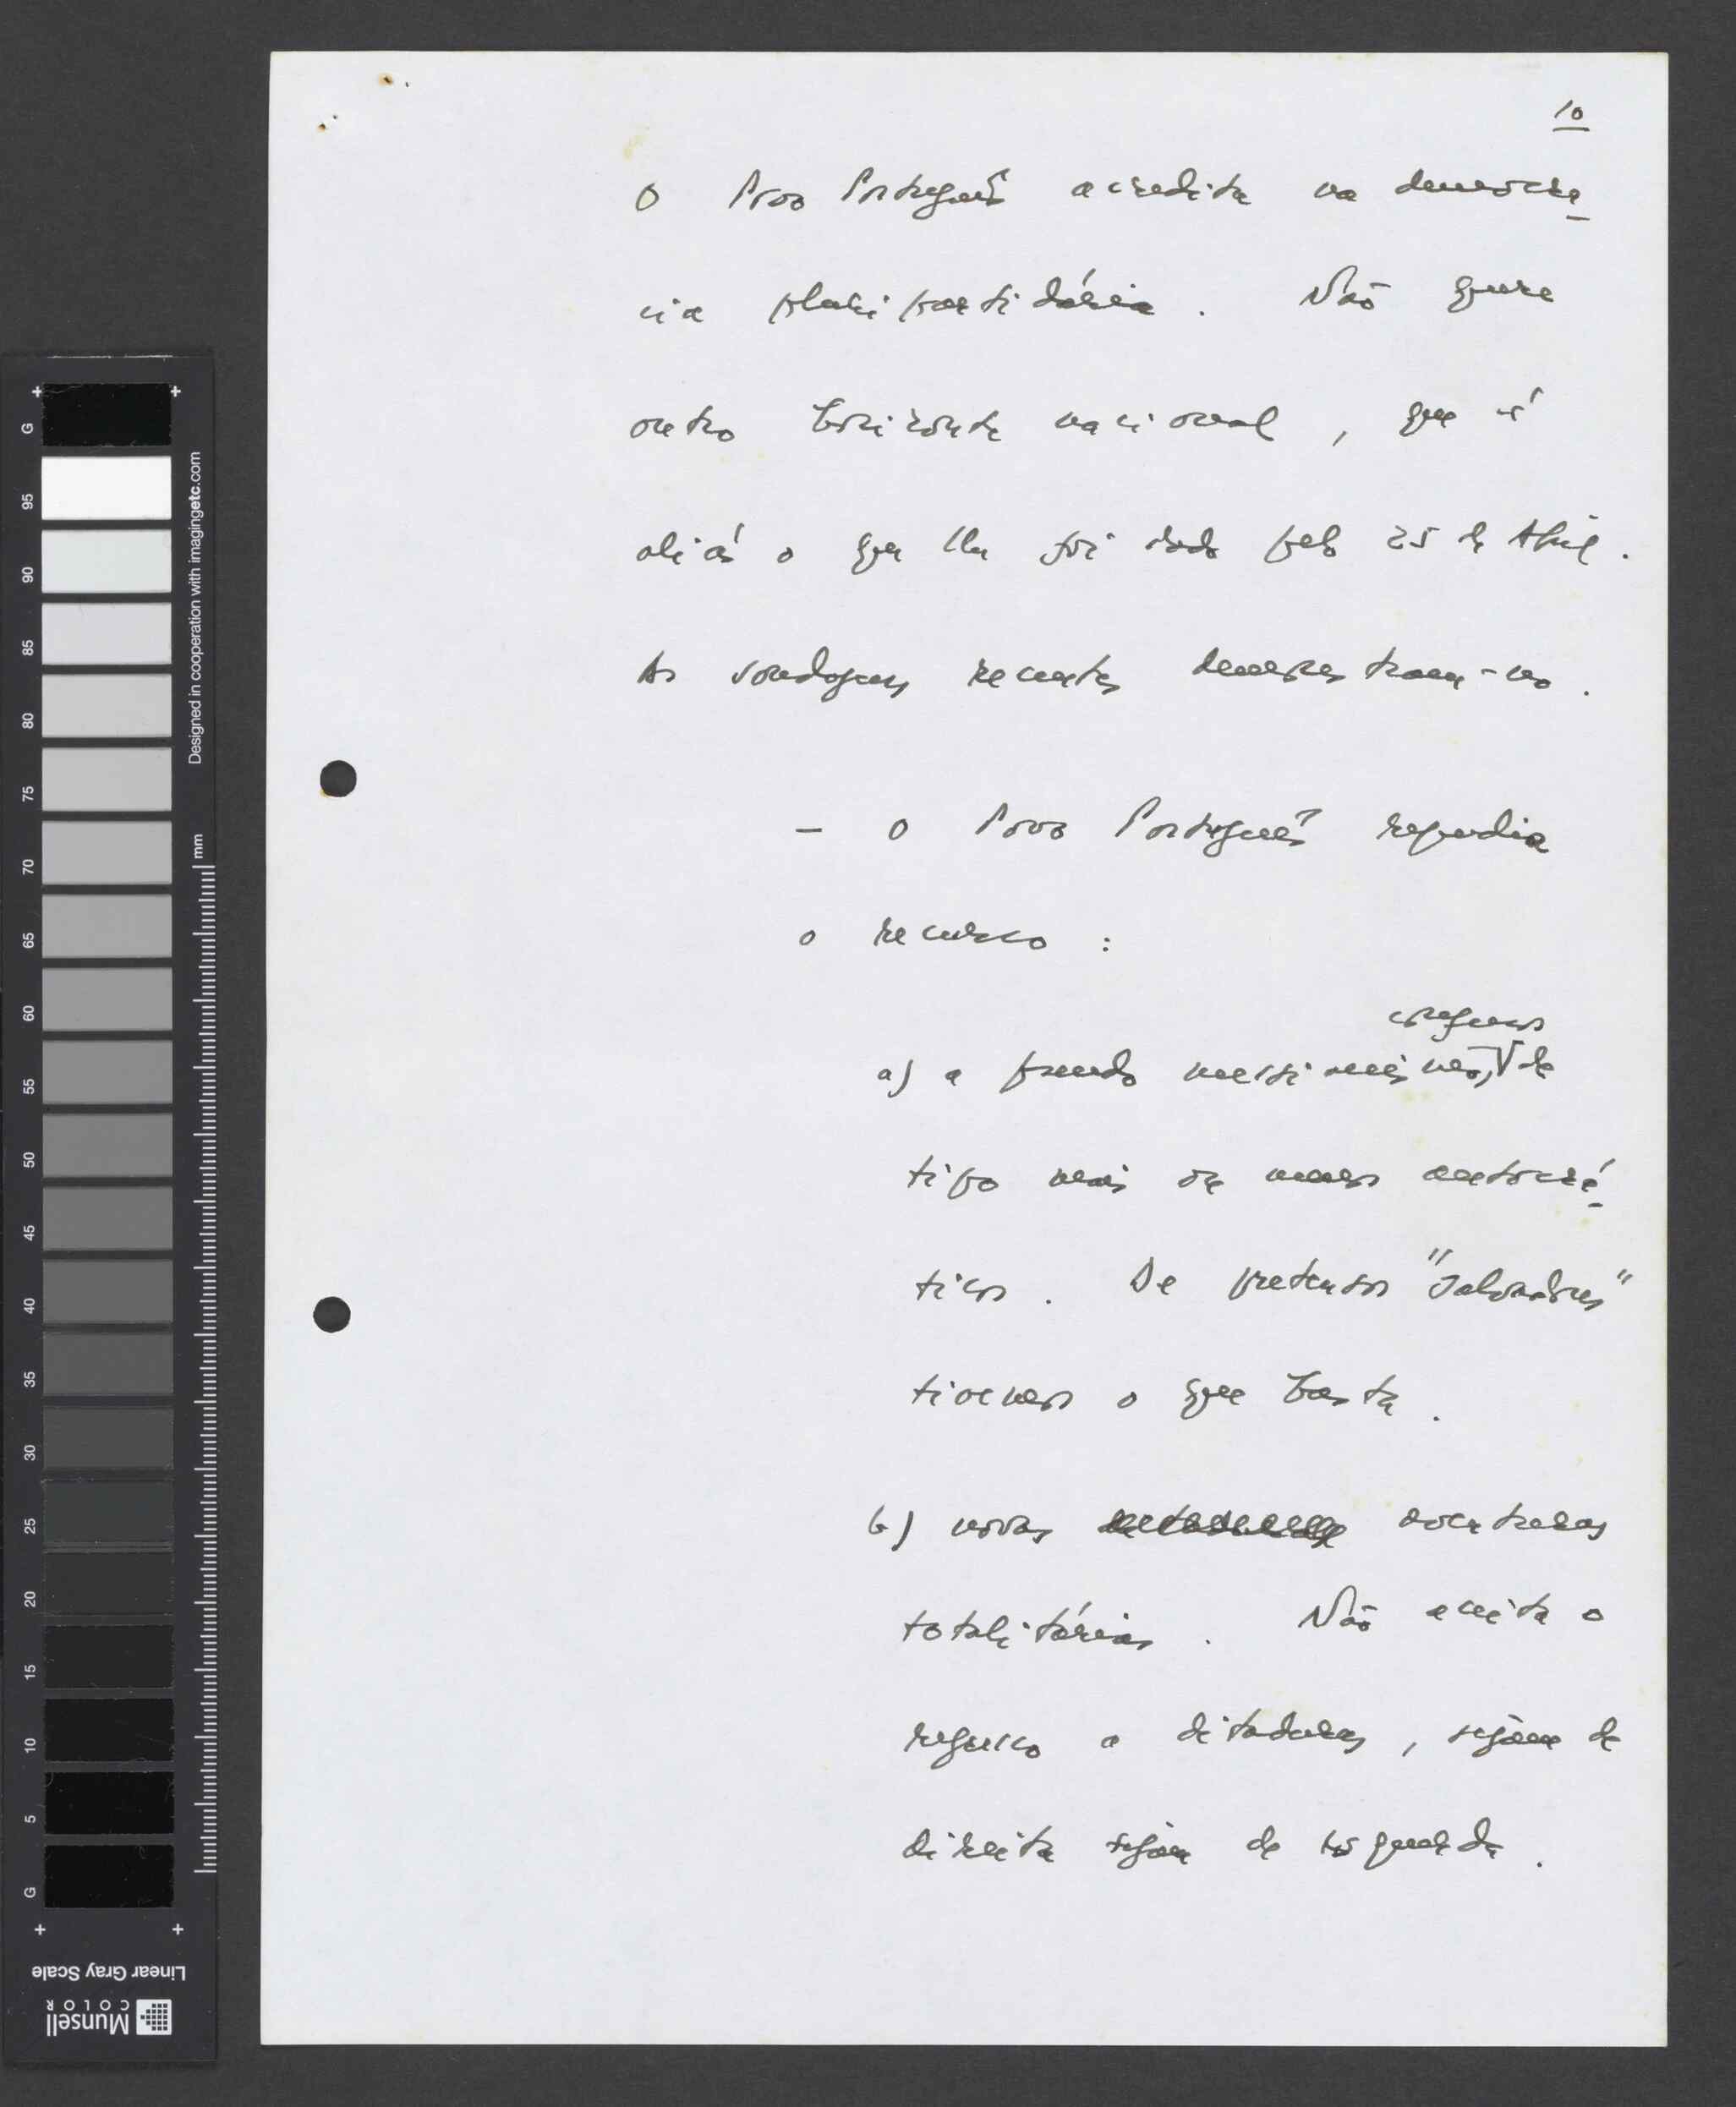 10
O Povo Português acredita na democra
cia pluripartidária. Não quere
outro horizonte nacional, que é
aliás o que lhe foi dado pelo 25 de Abril.
As sondagens recentes demonstram-no.
- O Povo Português repudia
o recurso:
a) a pseudo messianismos,
tipo mais ou menos autocrá
ticos. De pretensos "Salvadores"
tivemos o que basta.
b) novas aventuras
totalitárias. Não aceita o
regresso a ditaduras, sejam de
direita sejam de esquerda.
G 95 90 85 80 75 70 65 60 55 50 45 40 35 30 25 20 15 10 5 G
Designed in cooperation with imagingetc.com
mm
Linear Gray Scale
Munsell
COLOR